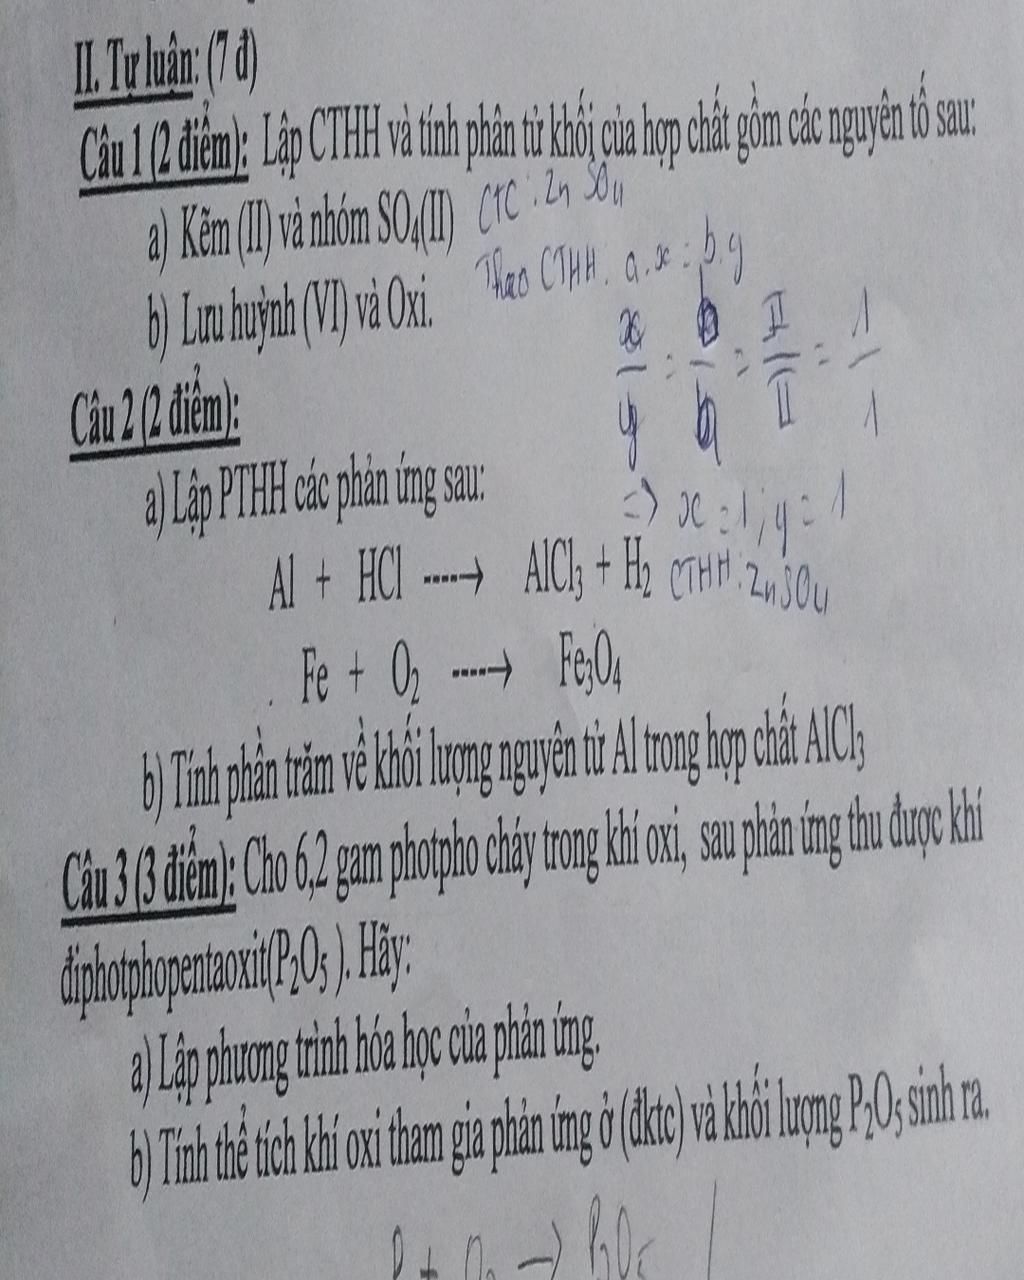 II. Tự luận: (7 đ)
Câu 1 (2 điểm): Lập CTHH và tính phân tử khối của hợp chất gồm các nguyên tố sau:
a) Kẽm (II) và nhóm SO4(II)
CTC : Zn SO4
b) Lưu huỳnh (VI) và Oxi.
Theo CTHH: a.x = b.y
x/y = b/a = II/II = 1/1
=> x = 1 ; y = 1
CTHH: ZnSO4
Câu 2 (2 điểm):
a) Lập PTHH các phản ứng sau:
Al + HCl ----→ AlCl3 + H2
Fe + O2 ----→ Fe3O4
b) Tính phần trăm về khối lượng nguyên tử Al trong hợp chất AlCl3
Câu 3 (3 điểm): Cho 6,2 gam photpho cháy trong khí oxi, sau phản ứng thu được khí
điphotphopentaoxit(P2O5 ). Hãy:
a) Lập phương trình hóa học của phản ứng.
b) Tính thể tích khí oxi tham gia phản ứng ở (đktc) và khối lượng P2O5 sinh ra.
P + O2 → P2O5